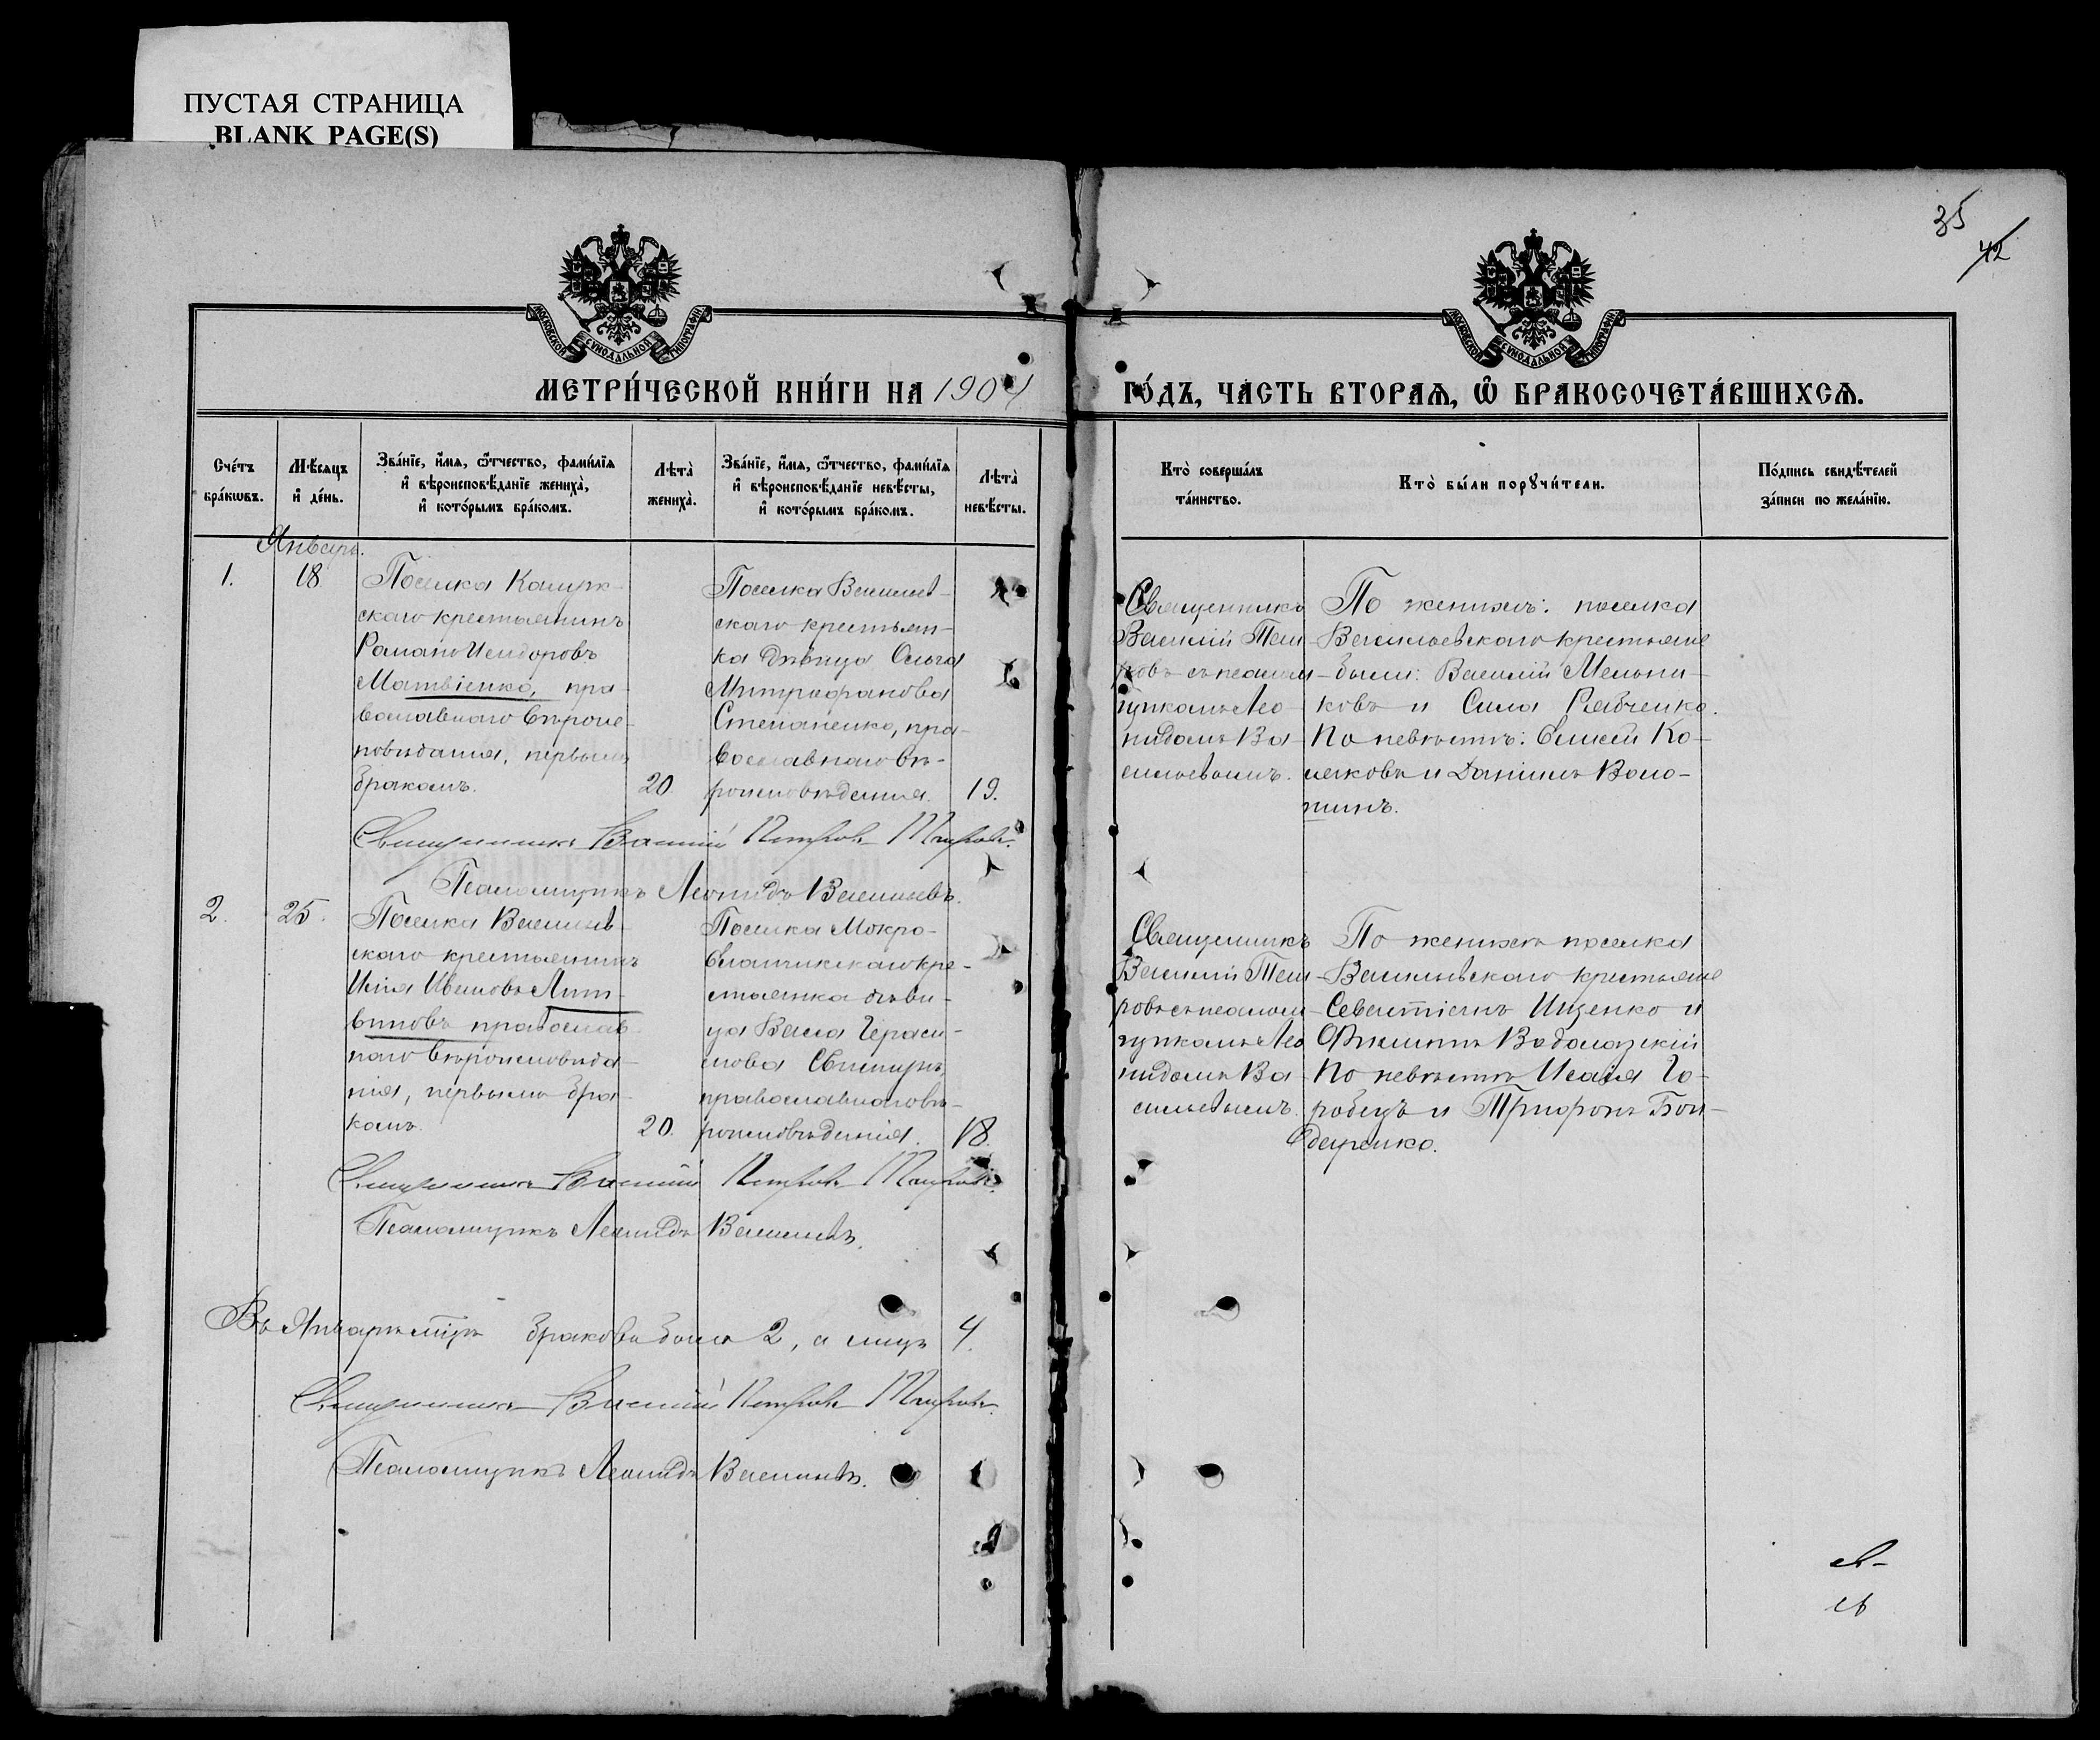 ПУСТАЯ СТРАНИЦА
BLANK PAGE(S)
35
42
МОСКОВСКОЙ СѴНОДАЛЬНОЙ ТИПОГРАФІИ
МОСКОВСКОЙ СѴНОДАЛЬНОЙ ТИПОГРАФІИ
МЕТРИ́ЧЕСКОЙ КНИ́ГИ НА 1904 ГО́ДЪ, ЧАСТЬ ВТОРАѦ, Ѡ҆ БРАКОСОЧЕТА́ВШИХСѦ.
Сче́тъ бра́кѡвъ.
Мѣ́сѧцъ и҆ де́нь.
Зва́нїе, и҆́мѧ, ѻ҆́тчество, фамѝлїѧ и҆ вѣроисповѣ́данїе жениха̀, и҆ кото́рымъ бра́комъ.
Лѣта̀ жениха̀.
Зва́нїе, и҆́мѧ, ѻ҆́тчество, фамѝлїѧ и҆ вѣроисповѣ́данїе невѣ́сты, и҆ кото́рымъ бра́комъ.
Лѣта̀ невѣ́сты.
Кто̀ соверша́лъ та́инство.
Кто̀ бы́ли порꙋчи́тели.
По́дпись свидѣ́телей за́писи по жела́нїю.
Январь.
1.
18
Поселка
скаго крестьянинъ
Романъ Исидоровъ
Матвіенко, пра-
вославнаго вѣроис-
повѣданія, первымъ
бракомъ.
20.
Поселка Василев-
скаго крестьян-
ка дѣвица Ольга
Митрофанова
Степаненко, пра-
вославнаго вѣ-
роисповѣданія.
19.
Священникъ
Василій
ровъ съ псалом-
щикомъ Лео-
нидомъ Ва-
сильевымъ.
По женихѣ: поселка
Васильевскаго крестьяне
были: Василій Мельни-
ковъ и Сила Рябченко.
По невѣстѣ: Елисей Ко-
лесковъ и Даніилъ Воло-
шинъ.
Священникъ Василій Петровъ
Псаломщикъ Леонидъ Васильевъ.
2.
25.
Поселка Васильев-
скаго крестьянинъ
Илія Ивановъ Лит-
виновъ православ-
наго вѣроисповѣда-
нія, первымъ бра-
комъ.
20.
Поселка Мокро-
еланчикскаго кре-
стьянка дѣви-
ца Васса Гераси-
мова
православнаго вѣ-
роисповѣданія.
18.
Священникъ
Василій
ровъ съ псалом-
щикомъ Лео-
нидомъ Ва-
сильевымъ.
По женихѣ поселка
Васильевскаго крестьяне
Севастіанъ Ищенко и
Филиппъ Водолазскій
По невѣстѣ Исаія Го-
робецъ и Трифонъ Бон-
даренко.
Священникъ Василій Петровъ
Псаломщикъ Леонидъ Васильевъ.
Въ Январѣ мѣсяцѣ браковъ было 2, а лицъ 4.
Священникъ Василій Петровъ
Псаломщикъ Леонидъ Васильевъ.